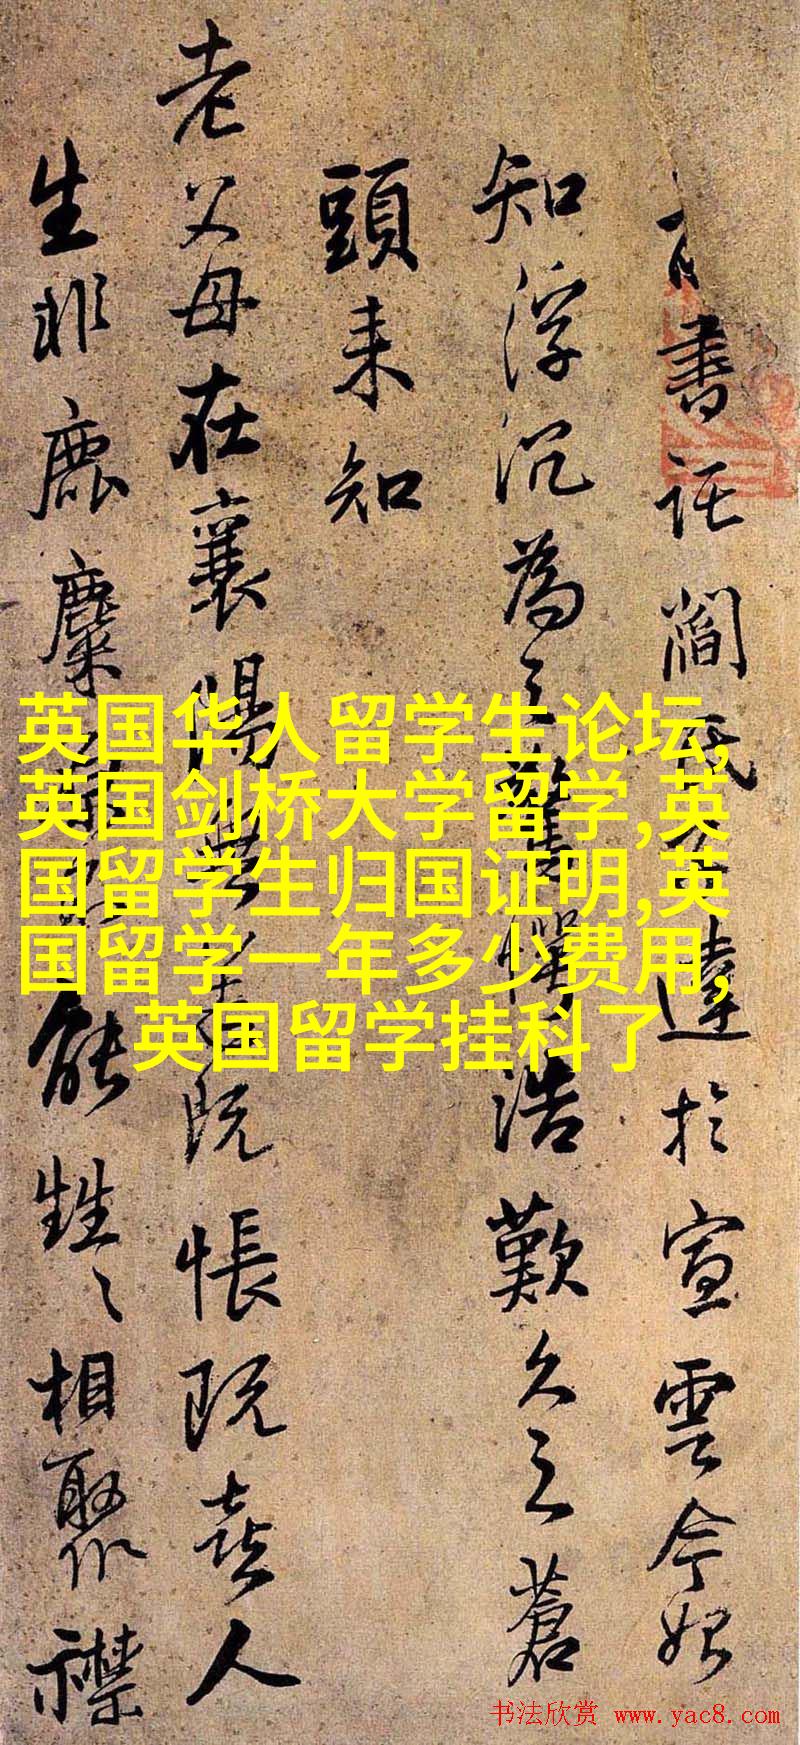 書託閻氏達於宣雲今始
知浮沉為之浩歎久之蒼
頭来知
老父母在襄陽無恙既悵既喜人
生非鹿麋能甡〻相聚襟
英国华人留学生论坛,
英国剑桥大学留学,英
国留学生归国证明,英
国留学一年多少费用,
英国留学挂科了
书法欣赏 www.yac8.com